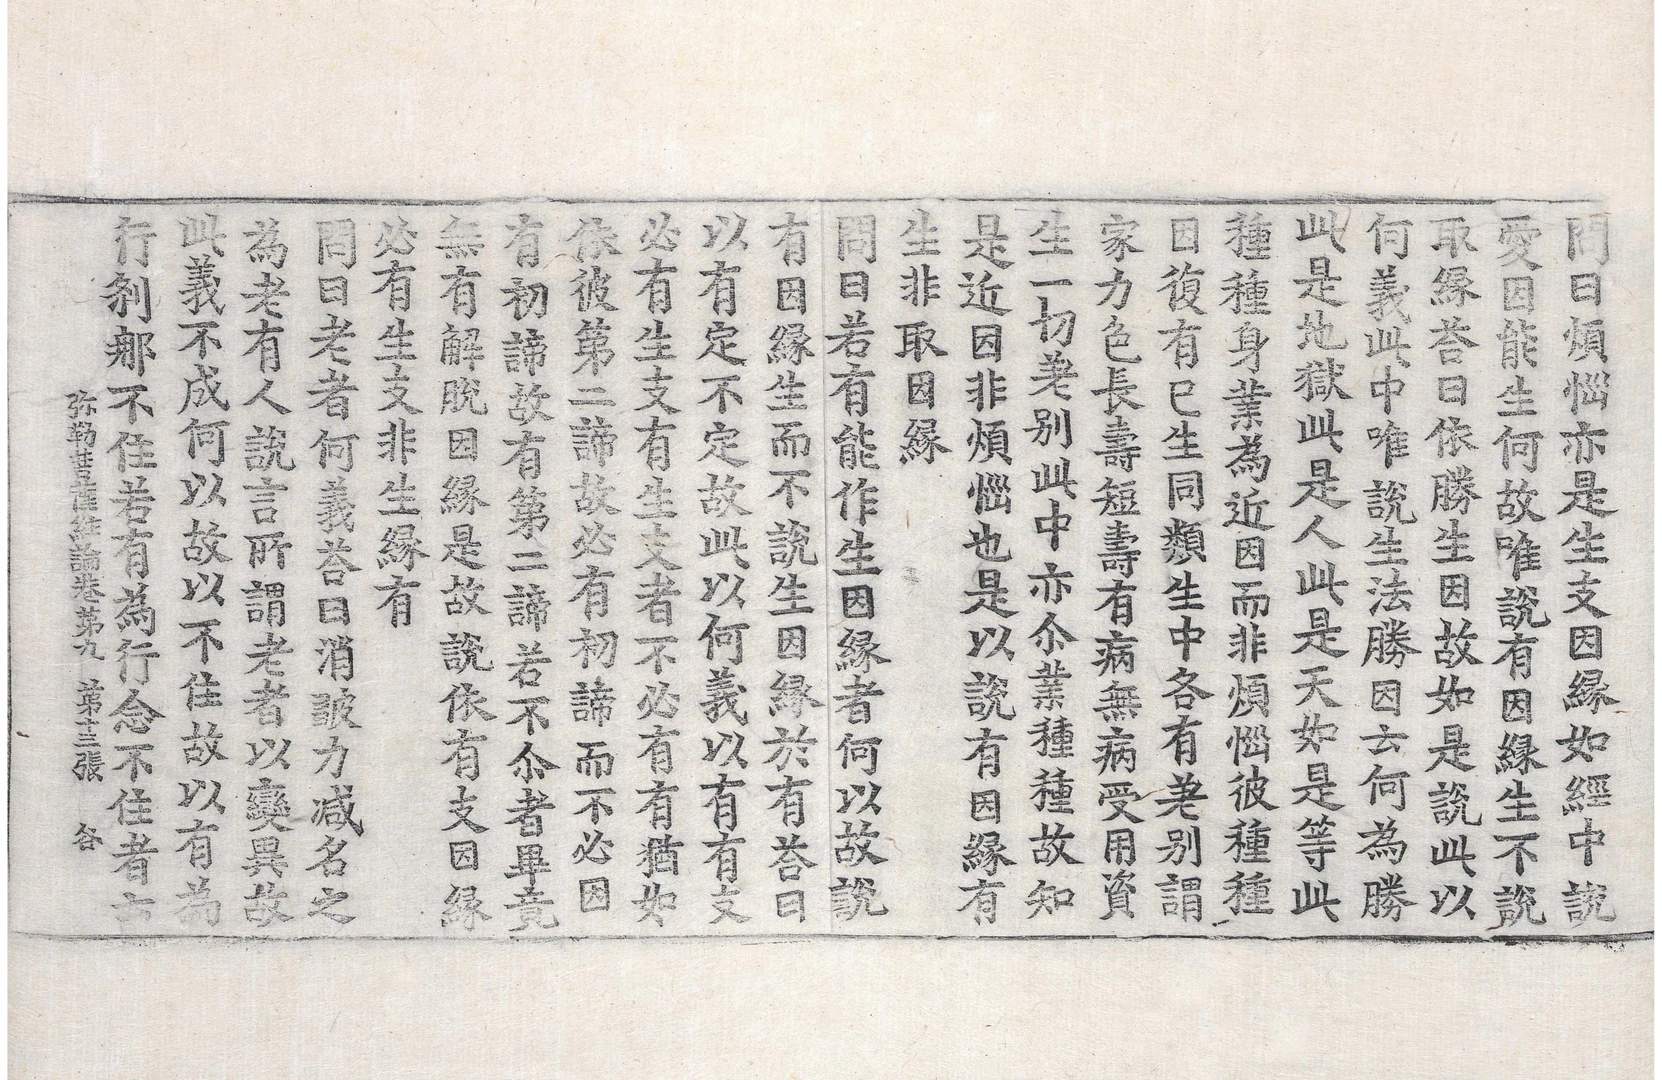 問曰煩惱亦是生支因縁如經中說
愛因能生何故唯說有因縁生不說
取縁荅曰依勝生因故如是說此以
何義此中唯說生法勝因云何為勝
此是地獄此是人此是天如是等此
種種身業為近因而非煩惱彼種種
因復有已生同類生中各有差別謂
家力色長壽短壽有病無病受用資
生一切差別此中亦尒業種種故知
是近因非煩惱也是以說有因縁有
生非取因縁
問曰若有能作生因縁者何以故說
有因縁生而不說生因縁於有荅曰
以有定不定故此以何義以有有支
必有生支有生支者不必有有猶如
依彼第二諦故必有初諦而不必因
有初諦故有第二諦若不尒者畢竟
無有解脫因縁是故說依有支因縁
必有生支非生縁有
問曰老者何義荅曰消皷力減名之
為老有人說言所謂老者以變異故
此義不成何以故以不住故以有為
行刹那不住若有為行念不住者云
弥勒菩薩經論卷第九　第十三張　谷